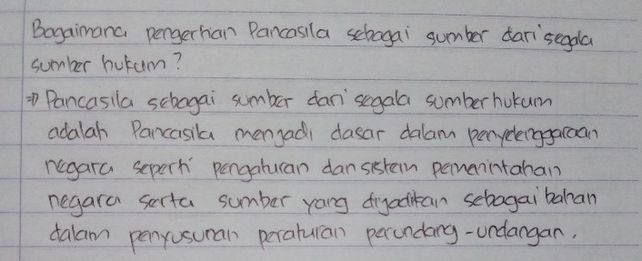 Bagaimana pengertian Pancasila sebagai sumber dari segala
sumber hukum?
⇒ Pancasila sebagai sumber dari segala sumber hukum
adalah Pancasila menjadi dasar dalam penyelenggaraan
negara seperti pengaturan dan sistem pemerintahan
negara serta sumber yang dijadikan sebagai bahan
dalam penyusunan peraturan perundang-undangan.